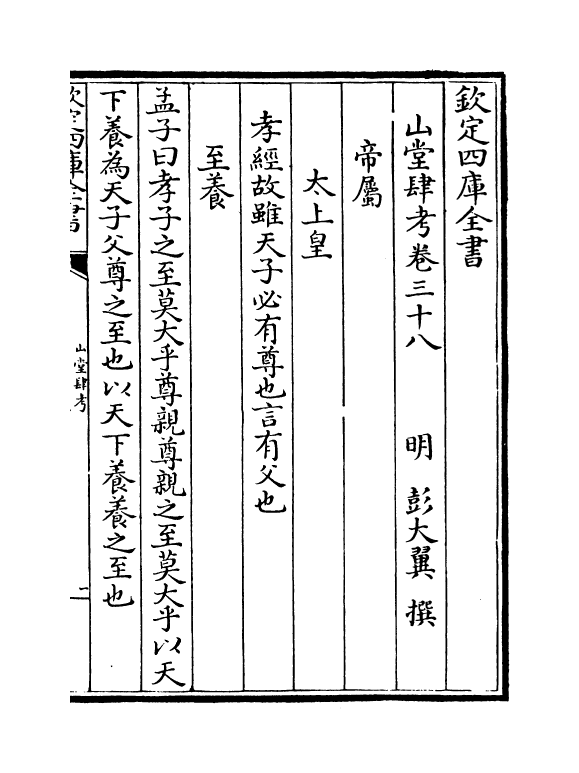 欽定四庫全書
山堂肆考卷三十八 明 彭大翼 撰
帝屬
太上皇
孝經故雖天子必有尊也言有父也
至養
孟子曰孝子之至莫大乎尊親尊親之至莫大乎以天
下養為天子父尊之至也以天下養養之至也
欽定四庫全書
山堂肆考